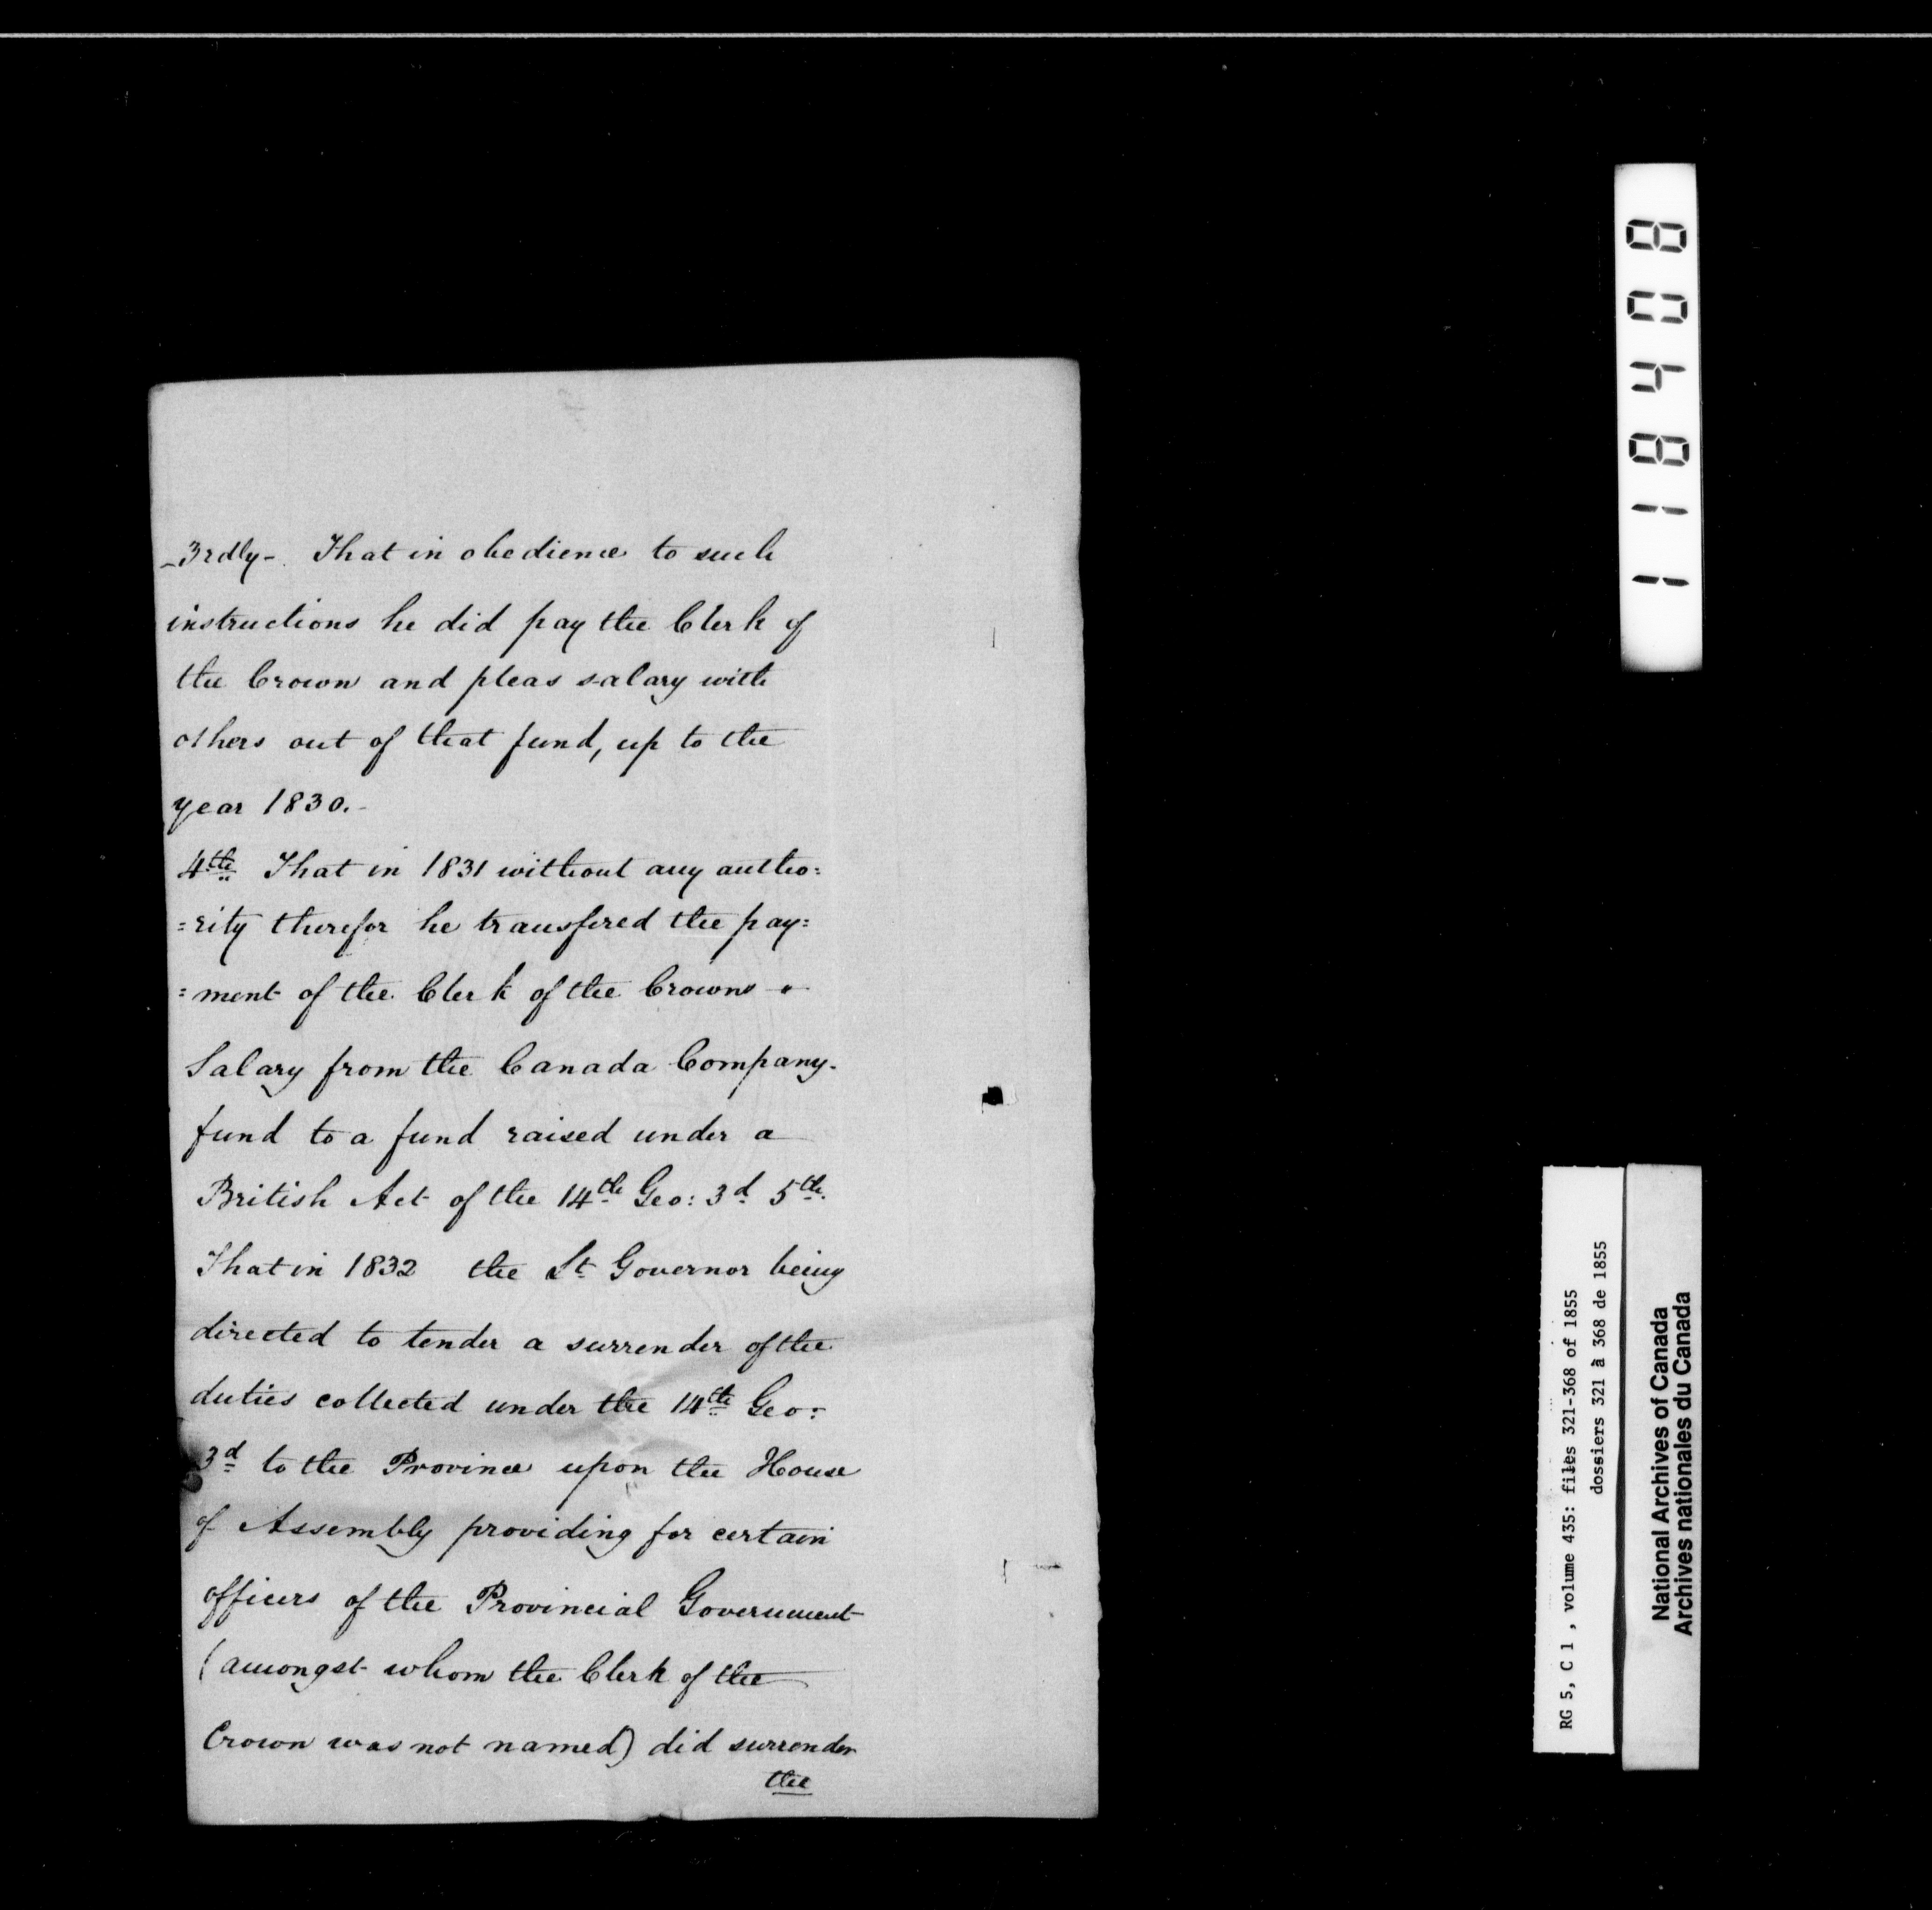 -3rdly- That in obedience to such
instructions he did pay the Clerk of
the Crown and pleas salary with
others out of that fund, up to the
year 1830.-
4th That in 1831 without any autho=
=rity therefor he transfered the pay=
=ment of the Clerk of the Crowns
Salary from the Canada Company
fund to a fund raised under a
British Act of the 14th Geo: 3d 5th
That in 1832 the Lt Governor being
directed to tender a surrender of the
duties collected under the 14th Geo:
3d to the Province upon the House
of Assembly providing for certain
officers of the Provincial Government
(amongst whom the Clerk of the
Crown was not named) did surrender
the
118408
RG 5, C 1 , volume 435: files 321-368 of 1855
dossiers 321 à 368 de 1855
National Archives of Canada
Archives nationales du Canada